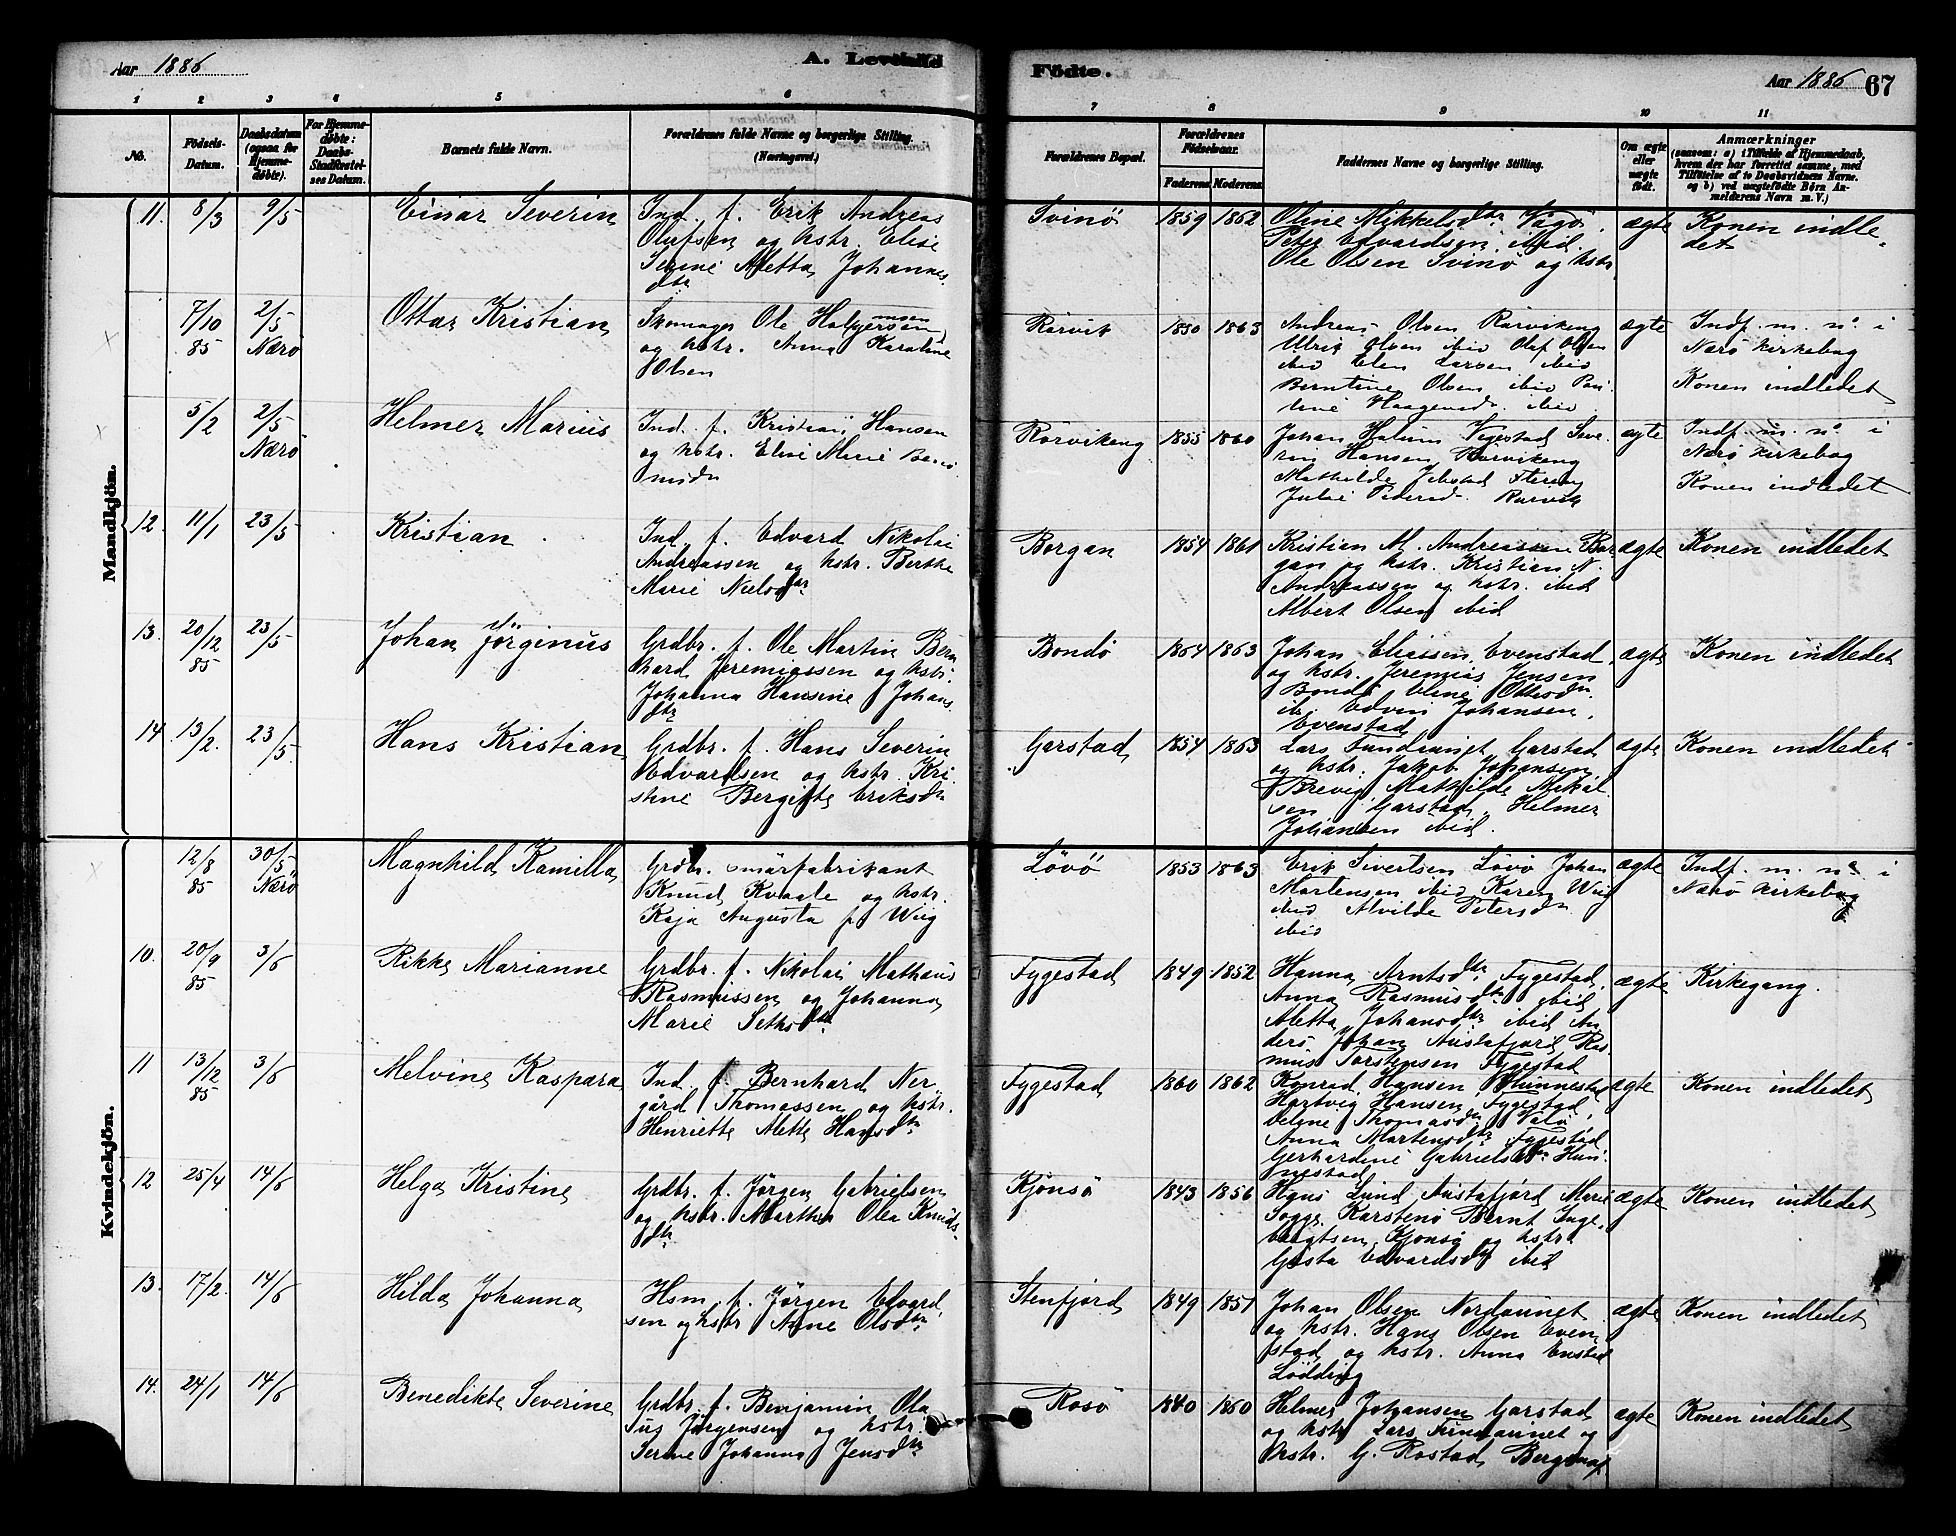 Aar 1886
A. Levende
Födte.
Aar 1886 67
1 2 3 4 5 6 7 8 9 10 11
No.
Födsels-
Datum.
Daabsdatum
(ogsaa for
Hjemme-
døbte).
For Hjemme-
døbte:
Daabs-
Stadfæstel-
ses Datum.
Barnets fulde Navn.
Forældrenes fulde Navne og borgerlige Stilling.
(Næringsvei.)
Forældrenes Bopæl.
Forældrenes
Födselsaar.
Faderens Moderens
Faddernes Navne og borgerlige Stilling.
Om ægte
eller
uægte
født.
Anmærkninger
(saasom: a) i Tilfælde af Hjemmedaab,
hvem der har forrettet samme, med
Tilföielse af to Daabsvidners Navne.
og b) ved uægtefödte Börn An-
melderens Navn m. V.)
Mandkjön.
11. 8/3 9/5 Einar Severin
Ind. f. Erik Andreas
Olufsen og kstr. Elise
Serine Aletta Johannes
dtr
Svinö 1859 1862
Oline Mikkelsdtr Vågö,
Peter Edvardsen ibid.
Ole Olsen Svinö og kstr
ægte
Konen indle-
det
7/10 85 2/5 Nærö Ottar Kristian
Skomager Ole
og kstr. Anna Karoline
Olsen
Rörvik 1850 1863
Andreas Olsen Rörvikeng
Ulrik Olsen ibid Olaf Olsen
ibid Elen Larsen ibid
Berntine Olsen ibid
ibid
ægte
Indf. m. nº. i
Nærö kirkebog
Konen indledet
5/2 2/5 Nærö Helmer Marius
Ind. f. Kristian Hansen
og kstr. Elise Marie
Rörvikeng 1855 1860
Johan
Hansen Rörvikeng
Mathilde
Julie Rörvik
ægte
Indf. m. nº. i
Nærö kirkebog
Konen indledet
12. 11/1 23/5 Kristian
Ind. f. Edvard Nikolai
Andreassen og kstr. Berthe
Marie Nielsdtr
Borgan 1854 1861
Kristian M. Andreassen Bor
gan og kstr. Kristian N.
Andreassen og kstr. ibid
Albert Olsen ibid
ægte
Konen indledet
13. 20/12 85 23/5 Johan Jörginus
Grdbr. f. Ole Martin Bern
hard Jeremiassen og kstr.
Johanna Hansine Johans
dtr
Bondö 1864 1863
Johan Eliassen Evenstad
og kstr. Jeremias Jensen
Bondö Oline Ottesdtr
ib. Edvin Johansen,
Evenstad
ægte
Konen indledet
14. 13/2. 23/5. Hans Kristian
Grdbr. f. Hans Severin
Edvardsen og kstr. Kri
stine Bergitte Eriksdtr
Garstad 1854 1863
Lars Garstad
og kstr. Jakob Johansen
Brevig Mathilde Mikal
sen Garstad, Helmer
Johansen ibid.
ægte
Konen indledet
Kvindekjön.
12/8 85 30/5 Nærö Magnhild Kamilla
Grdbr. smörfabrikant
Knud Kvaale og kstr.
Kaja Augusta f. Wiig
Lövö 1853 1863
Erik Sivertsen Lövö Johan
Martensen ibid Karen Wiig
ibid Alvilde Petersdtr
ibid
ægte
Indf. m. nº i
Nærö kirkebog
10. 20/9 85 3/6 Rikke Marianne
Grdbr. f. Nikolai Mathæus
Rasmussen og Johanna
Marie Sethsdtr
Fygestad 1849 1852
Hanna Arntsdtr Fygestad,
Anna Rasmusdtr ibid
Aletta Johansdtr ibid An
ders Johan Austafjord Ras
mus Torstensen Fygestad
ægte
Kirkegang.
11 13/12 85 3/6 Melvine Kaspara
Ind. f. Bernhard Ner-
gård Thomassen og kstr.
Henriette Alette Hansdtr
Fygestad 1860 1862
Konrad Hansen Hunnestad
Hartvig Hansen Fygestad,
Thomasdtr Valö
Anna Martensdtr Fygestad
Gerhardine Gabrielsdtr Hun
nestad
ægte
Konen indledet
12 25/4 14/6 Helga Kristine
Grdbr. f. Jörgen Gabrielsen
og kstr. Martha Olea Knuds
dtr
Kjönsö 1843 1856
Hans Lund Austafjord Marie
Karstenö Bernt Inge-
brigtsen Kjönsö og kstr
Gjesta Edvardsdtr ibid
ægte
Konen indledet
13. 17/2. 14/6 Hilda Johanna
Hsm. f. Jörgen Edvard
sen og kstr Anne Olsdtr
Stenfjord 1849 1851
Johan Olsen Nordaunet
og kstr. Hans Olsen Even
stad og kstr. Anna
Lödding
ægte
Konen indledet
14. 24/1 14/6 Benedikte Severine
Grdbr. f. Benjamin Ola
sus Jörgensen og kstr.
Serine Johanna Jensdtr
Rosö 1840 1860
Helmer Johansen Garstad
og kstr Lars og
kstr. G. Rostad
ægte
Konen indledet